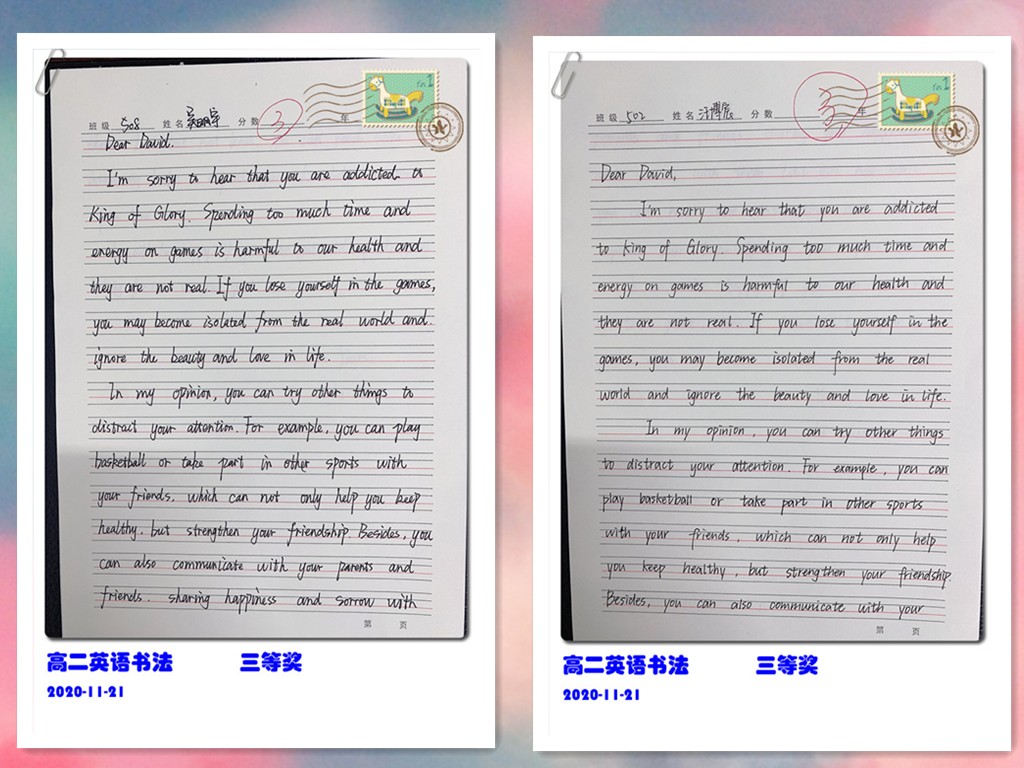 班级 508 姓名 分数 3 年
Dear David.
I'm sorry to hear that you are addicted to
King of Glory. Spending too much time and
energy on games is harmful to our health and
they are not real. If you lose yourself in the games,
you may become isolated from the real world and
ignore the beauty and love in life.
In my opinion, you can try other things to
distract your attention. For example, you can play
basketball or take part in other sports with
your friends, which can not only help you keep
healthy, but strengthen your friendship. Besides, you
can also communicate with your parents and
friends. sharing happiness and sorrow with
第 页
高二英语书法 三等奖
2020-11-21
班级 502 姓名 汪博宸 分数 年
Dear David,
I'm sorry to hear that you are addicted
to King of Glory. Spending too much time and
energy on games is harmful to our health and
they are not real. If you lose yourself in the
games, you may become isolated from the real
world and ignore the beauty and love in life.
In my opinion, you can try other things
to distract your attention. For example, you can
play basketball or take part in other sports
with your friends, which can not only help
you keep healthy, but strengthen your friendship.
Besides, you can also communicate with your
第 页
高二英语书法 三等奖
2020-11-21